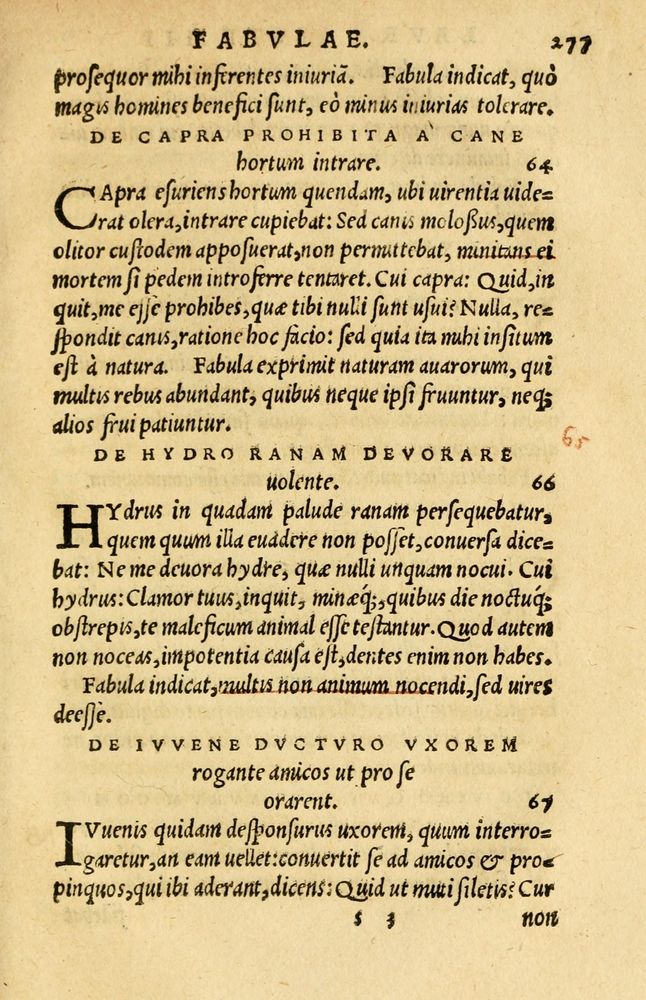 FABVLAE. 277
prosequor mihi inferentes iniuriã. Fabula indicat, quò
magis homines benefici sunt, eò minus iniurias tolerare.
DE CAPRA PROHIBITA A` CANE
hortum intrare. 64
CApra esuriens hortum quendam, ubi uirentia uide=
rat olera, intrare cupiebat: Sed canis moloßus, quem
olitor custodem apposuerat, non permittebat, minitans ei
mortem si pedem introferre tentaret. Cui capra: Quid, in
quit, me esse prohibes, quæ tibi nulli sunt usui? Nulla, re=
spondit canis, ratione hoc facio: sed quia ita mihi insitum
est à natura. Fabula exprimit naturam auarorum, qui
multis rebus abundant, quibus neque ipsi fruuntur, neq;
alios frui patiuntur.
65
DE HYDRO RANAM DEVORARE
uolente. 66
HYdrus in quadam palude ranam persequebatur,
quem quum illa euadere non posset, conuersa dice=
bat: Ne me deuora hydre, quæ nulli unquam nocui. Cui
hydrus: Clamor tuus, inquit, minæq́;, quibus die noctuq́;
obstrepis, te maleficum animal esse testantur. Quod autem
non noceas, impotentia causa est, dentes enim non habes.
Fabula indicat, multis non animum nocendi, sed uires
deesse.
DE IVVENE DVCTVRO VXOREM
rogante amicos ut pro se
orarent. 67
IVuenis quidam desponsurus uxorem, quum interro=
garetur, an eam uellet: conuertit se ad amicos & pro=
pinquos, qui ibi aderant, dicens: Quid ut muti siletis? Cur
s 3 non